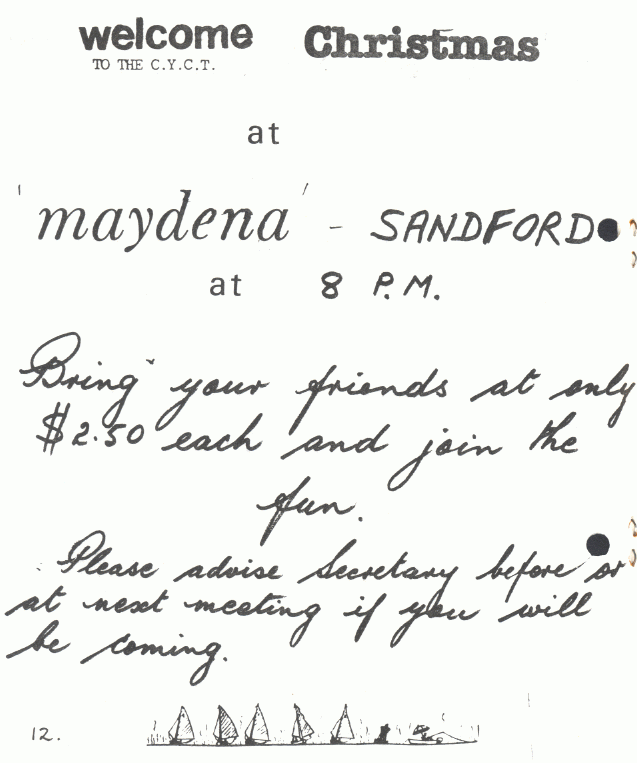 welcome Christmas
TO THE C.Y.C.T.
at
'maydena' - SANDFORD
at 8 P.M.
Bring your friends at only
$2.50 each and join the
fun.
Please advise Secretary before or
at next meeting if you will
be coming.
12.